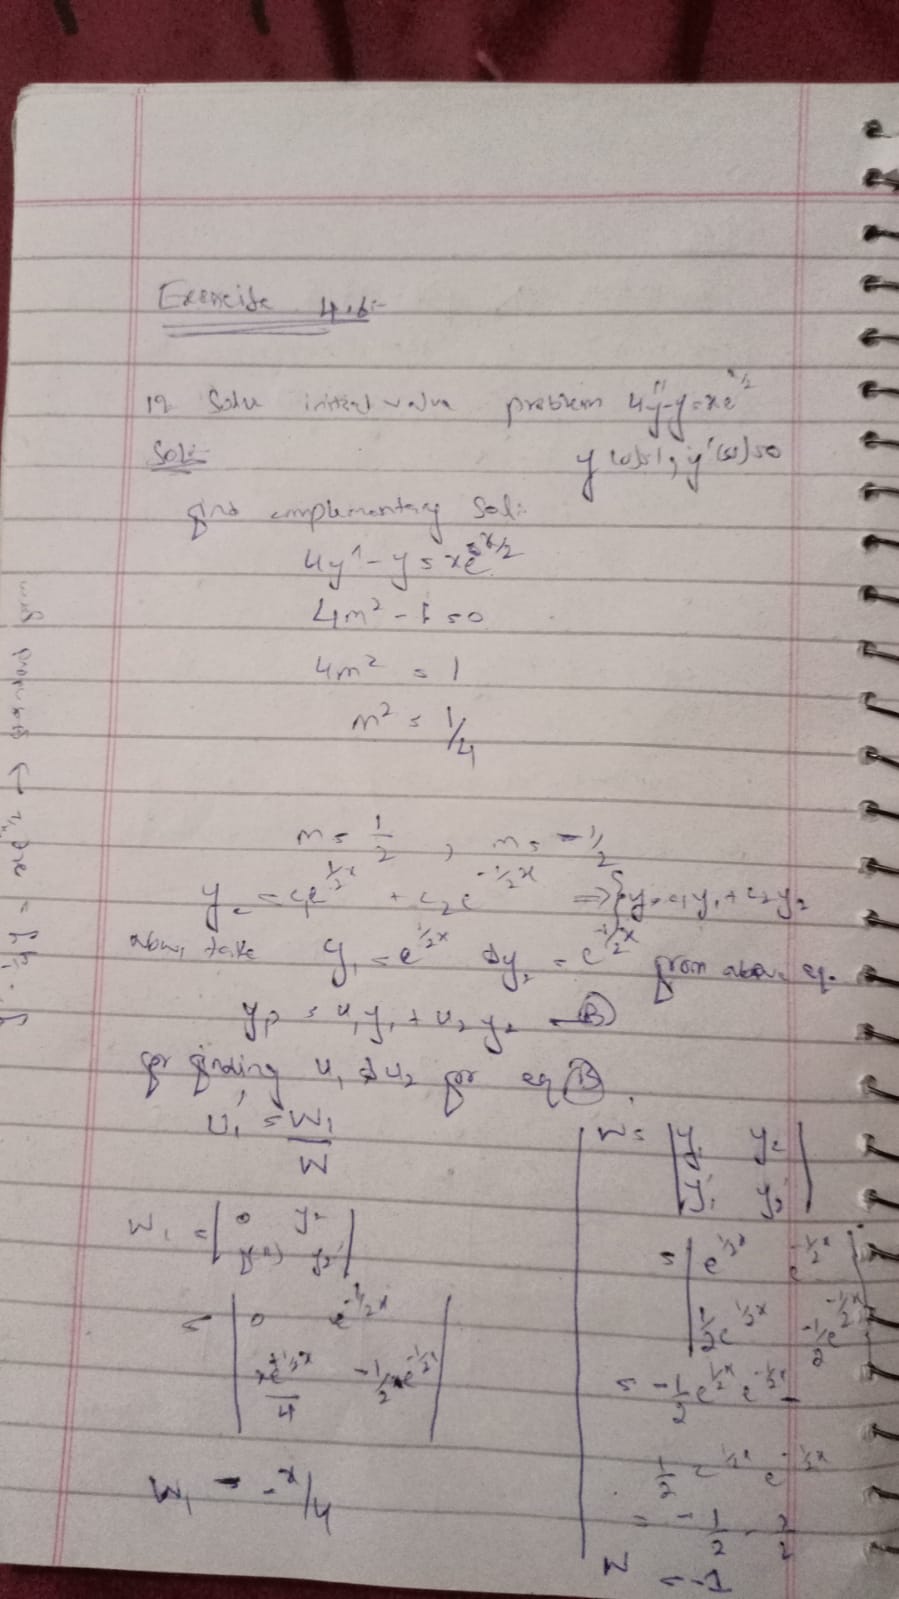 Exercise 4.6:-
19 Solve initial value problem 4y''-y=xe^{x/2}
Sol:-
y(0)=1, y'(0)=0
find complementary Sol:
4y''-y=xe^{x/2}
4m²-1=0
4m²=1
m²=1/4
m=1/2, m=-1/2
y_c=c₁e^{1/2x}+c₂e^{-1/2x} => y=c₁y₁+c₂y₂
now, take y₁=e^{1/2x} & y₂=e^{-1/2x} from above eq.
y_p=u₁y₁+u₂y₂ -(B)
for finding u₁ & u₂ for eq (B).
u₁'=W₁/W
W₁=|0 y₂|
|f(x) y₂'|
=|0 e^{-1/2x}|
|xe^{1/2x}/4 -1/2e^{-1/2x}|
W₁=-x/4
W=|y₁ y₂|
|y₁' y₂'|
=|e^{1/2x} e^{-1/2x}|
|1/2e^{1/2x} -1/2e^{-1/2x}|
=-1/2e^{1/2x}e^{-1/2x}-
1/2e^{1/2x}e^{-1/2x}
W=-1